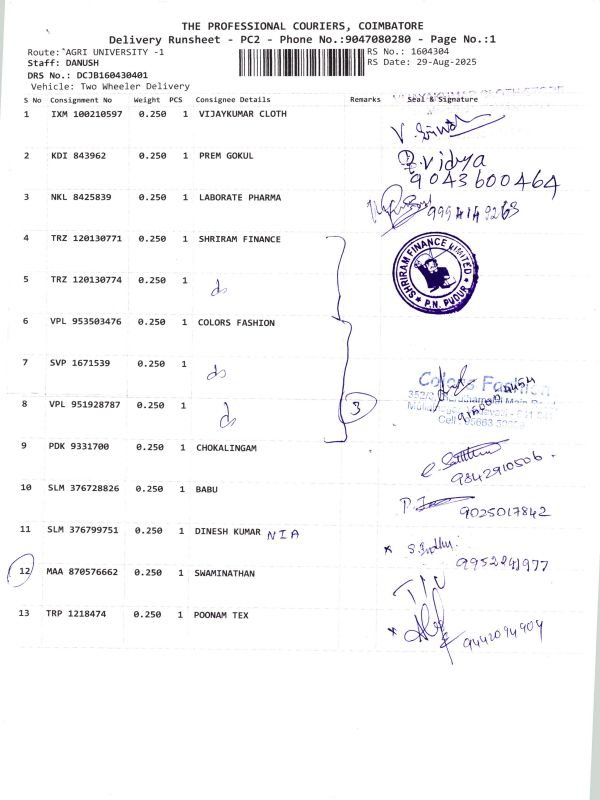 THE PROFESSIONAL COURIERS, COIMBATORE
Delivery Runsheet - PC2 - Phone No.:9047080280 - Page No.:1
Route:`AGRI UNIVERSITY -1
RS No.: 1604304
Staff: DANUSH
RS Date: 29-Aug-2025
DRS No.: DCJB160430401
Vehicle: Two Wheeler Delivery
S No Consignment No Weight PCS Consignee Details Remarks Seal & Signature
1 IXM 100210597 0.250 1 VIJAYKUMAR CLOTH
2 KDI 843962 0.250 1 PREM GOKUL R.vidya
9043600464
3 NKL 8425839 0.250 1 LABORATE PHARMA 9994149263
4 TRZ 120130771 0.250 1 SHRIRAM FINANCE
SHRIRAM FINANCE LIMITED
* P.N. PUDUR *
5 TRZ 120130774 0.250 1 do
6 VPL 953503476 0.250 1 COLORS FASHION
7 SVP 1671539 0.250 1 do
Colors Fashion
8 VPL 951928787 0.250 1 do 3
9 PDK 9331700 0.250 1 CHOKALINGAM
9842910506.
10 SLM 376728826 0.250 1 BABU
9025017842
11 SLM 376799751 0.250 1 DINESH KUMAR NIA
9952241977
12 MAA 870576662 0.250 1 SWAMINATHAN
13 TRP 1218474 0.250 1 POONAM TEX
9442094904